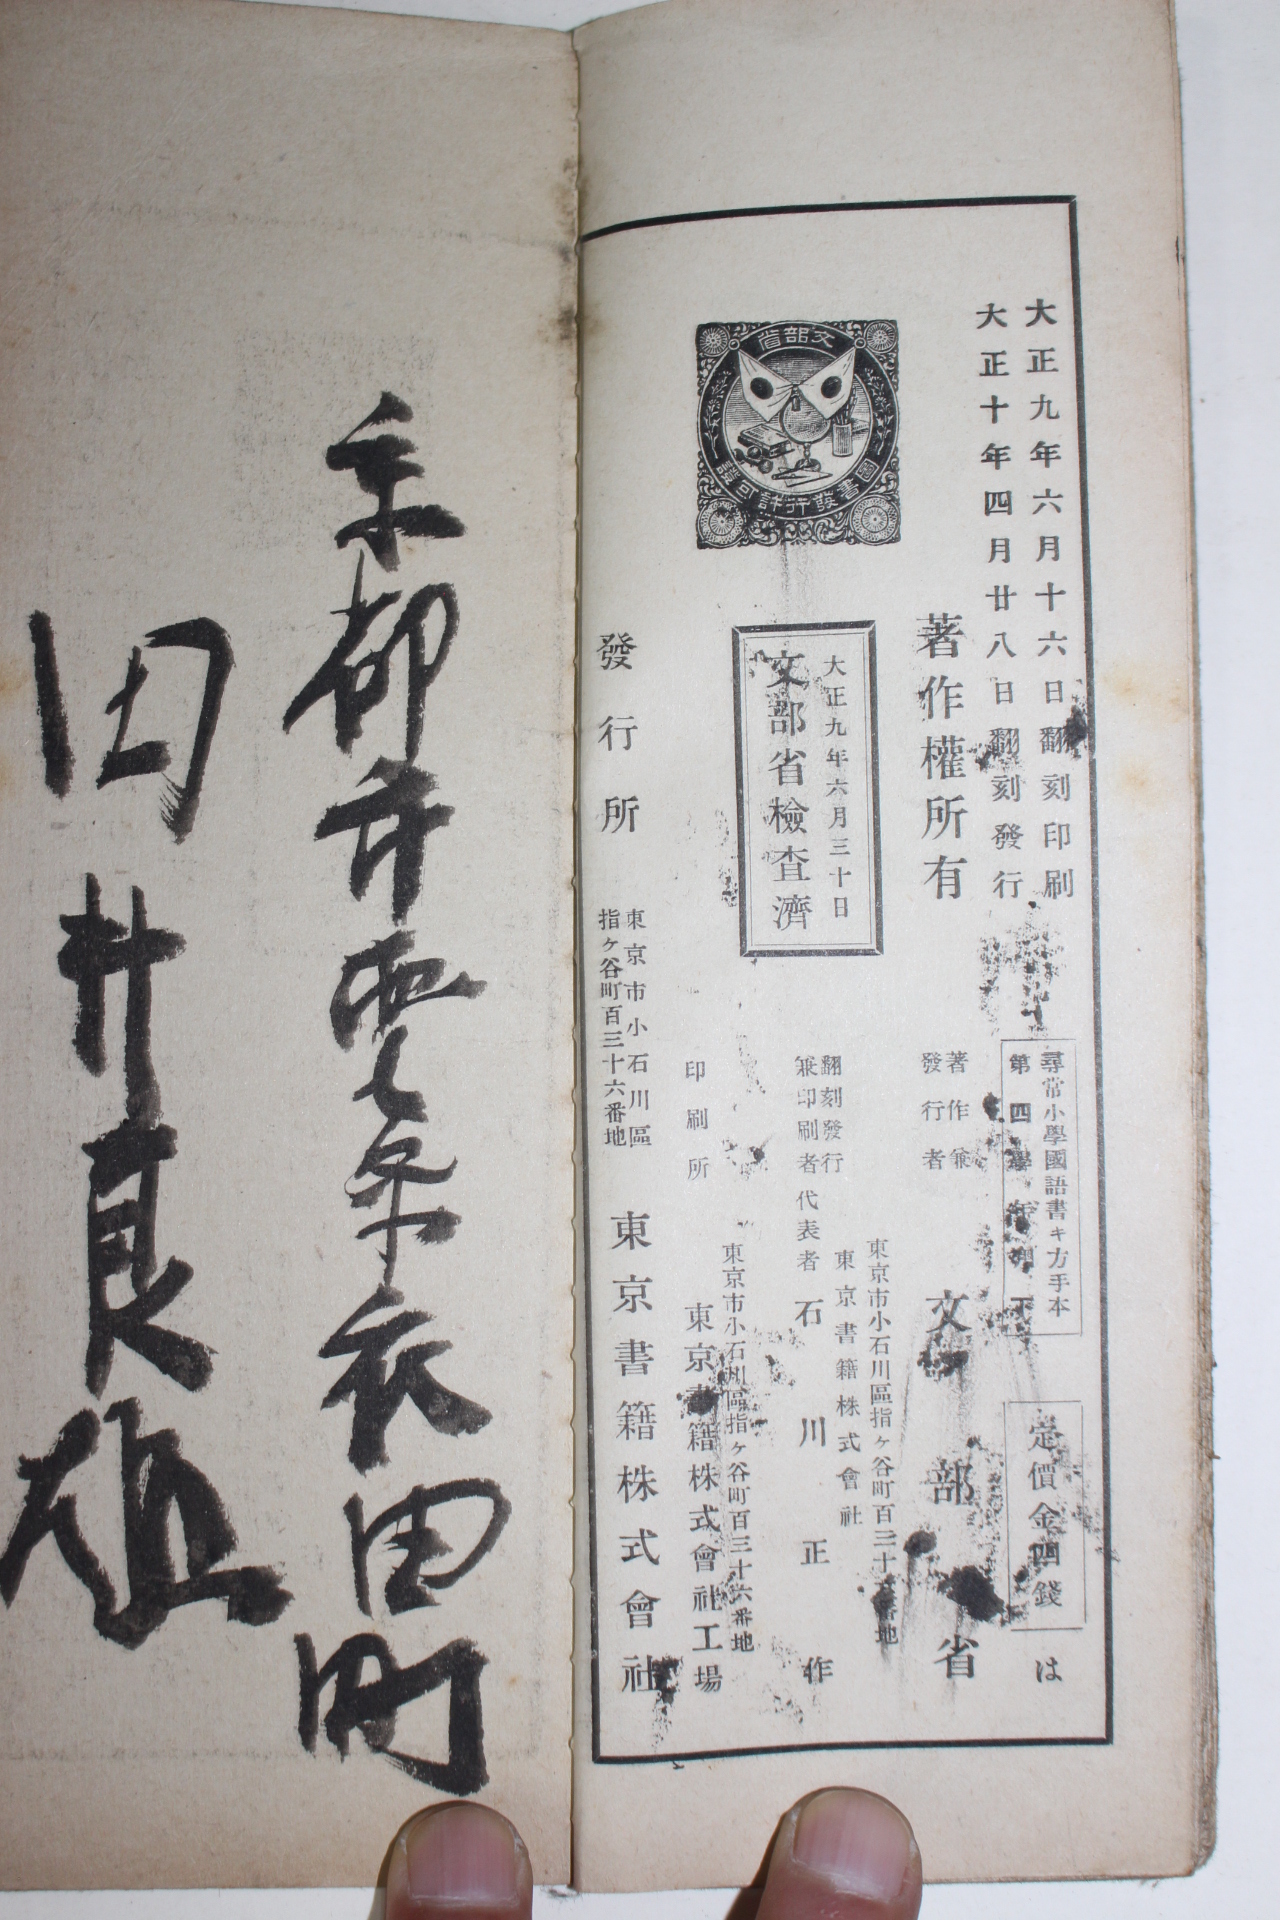 大正九年六月十六日翻刻印刷
大正十年四月廿八日翻刻發行
著作權所有
尋常小學國語書キ方手本
第四學年用下
定價金四錢
は
著作兼
發行者
文部省
大正九年六月三十日
文部省檢査濟
翻刻發行
兼印刷者
代表者
東京市小石川區指ヶ谷町百三十六番地
東京書籍株式會社
石川正作
文部省
圖書發行許可證
印刷所
東京市小石川區指ヶ谷町百三十六番地
東京書籍株式會社工場
發行所
東京市小石川區
指ヶ谷町百三十六番地
東京書籍株式會社
京都市
衣田町
田井良